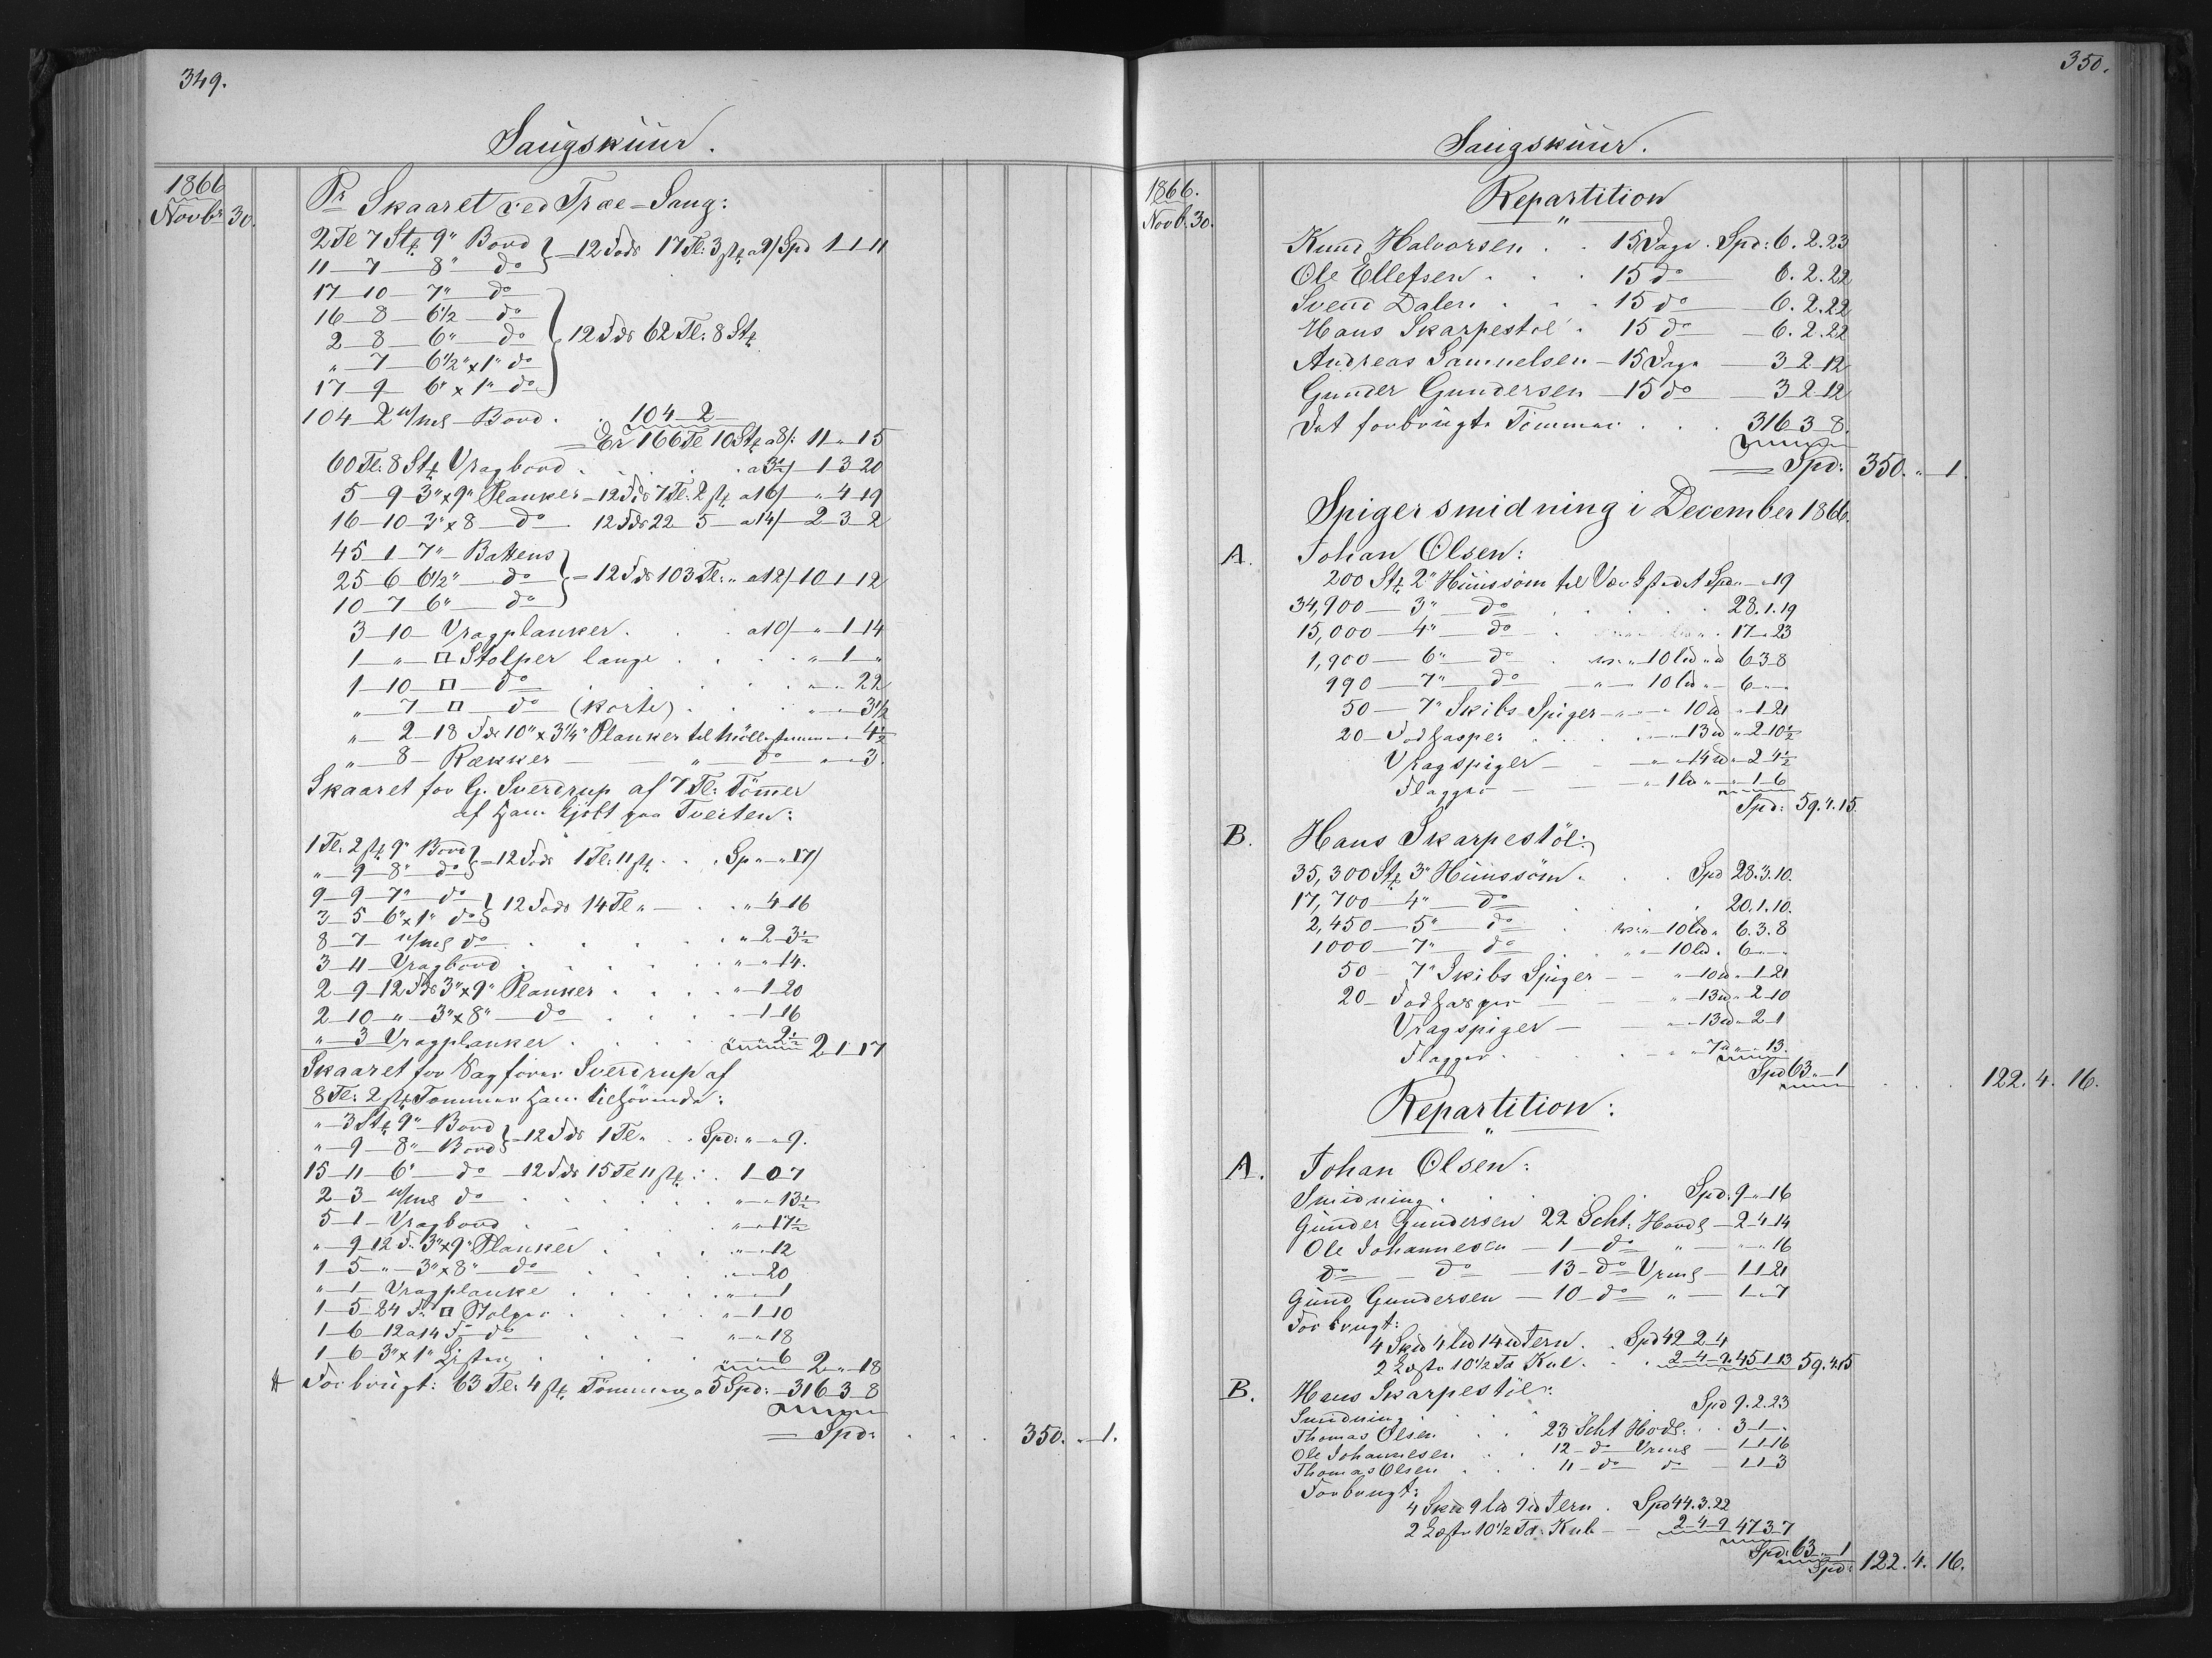 349.
Saugskuur.
1866
Novbr 30.
Pr Skaaret ved Træ-Saug:
2 Tl 7 Stk 9" Bord } = 12 Fods 17 Tl. 3 stk a 9/ Spd 1-1-11
11-7-8" do
17-10-7" do
16-8-6½ do
2-8-6" do } 12 Fds 62 Tl: 8 Stk
"-7-6½" x 1" do
17-9-6" x 1" do
104-2 u/ms Bord . . 104-2
Er 166 Tl 10 Stk a 8/: 11 " 15
60 Tl. 8 Stk Vragbord . . . a 3½/ 1-3-20
5-9-3" x 9" Planker - 12 Fds 7 Tl. 2 stk a 16/ - " 4-19
16-10-3" x 8 - do 12 Fds 22-5 - a 14/ - 2-3-2
45-1-7" Battens
25-6-6½" do } = 12 Fds 103 Tl: " a 12/ 10-1-12
10-7-6" do
3-10 - Vragplanker . . a 10/ - " 1-14
1 - " - □ Stolper lange . . . " 1 - "
1-10 - □ - do . . . . " - " 22
" 7 - □ - do (korte) . . . " - " 3½
" - 2-18 Fds 10" x 3¼" Planker til Mölle " - " 4½
" 8 - Rækker - " - do - " - " 3.
Skaaret for G. Sverdrup af 7 Tl: Tömmer
af ham kjöbt fra Tveiten:
1 Tl: 2 stk 9" Bord } = 12 Fods 1 Tl: 11 stk . . Sp " - " 17/
" - 9-8" do
9-9-7" do } 12 Fods 14 Tl " - . . " 4-16
3-5-6" x 1" do
8-7 - u/ms do . . . . " 2-3½
3-11 - Vragbord . . . . " - " 14.
2-9-12 Fds 3" x 9" Planker . . . " 1-20
2-10 - " - 3" x 8" - do . . . - 1-16
" - 3 Vragplanker . . . . 2½ 2-1-17
Skaaret for Sagförer Sverdrup af
8 Tl: 2 stk Tömmer ham tilhörende:
" - 3 Stk 9" - Bord } = 12 Fds 1 Tl " . . Spd: " - " 9.
" - 9-8" - Bord
15-11-6" - do - 12 Fds 15 Tl 11 stk : . 1-0-7
2-3 - u/ms do . . . . " - " 13½
5-1 - Vragbord . . . . " - " 17½
" - 9-12 F. 3" x 9" Planker . . . " - " 12
1-5 - " - 3" x 8" - do . . . " - " 20
" - 1 - Vragplanke . . . . " - " 1
1-5-24 F. □ Stolper . . . " - 1-10
1-6-12 a 14 F - do . . . " - " 18
1-6-3" x 1" Lister . . . 6 2 - " 18
Forbrugt: 63 Tl: 4 stk Tömmer a 5 Spd: - 316-3-8
= Spd: . . . 350. " 1.
350.
Saugskuur.
1866.
Novb. 30.
Repartition
Knud Halvorsen . . 15 Dage . Spd: 6. 2. 23
Ole Ellefsen . . . 15 do - 6. 2. 22
Svend Dalen . . . 15 do - 6. 2. 22
Hans Skarpestöl . 15 do - 6. 2. 22
Andreas Samuelsen - 15 Dage - 3-2-12
Gunder Gundersen - 15 do - 3-2-12
Det forbrugte Tömmer . . . 316-3-8.
= Spd: 350. " 1.
Spigersmidning i December 1866.
A. Johan Olsen:
200 Stk 2" Huussöm til Værkstedet Spd " - " 19
34,900 - 3" - do . . . . 28. 1. 19
15,000 - 4" - do . . 17 - " 23
1,900 - 6" - do . 10 - 6-3-8
990 - 7" - do - " - 10 - 6 - " - "
50 - 7" Skibs-Spiger - " - 10 - " 1-21
20 - Fodhasper . . . - 13 - " 2-10½
Vragspiger - - " - 14 - " 2-4½
Flagger - - " - 1 - " 1-6
Spd: 59. 4. 15
B. Hans Skarpestöl:
35,300 Stk 3" Huussöm . . . Spd 28. 3. 10.
17,700 - 4" - do . . 20. 1. 10.
2,450 - 5" - do . 10 " 6. 3. 8
1000 - 7" - do . " - 10 . 6 - " - "
50 - 7" Skibs Spiger - - " - 10 " 1-21
20 - Fodhasper - - " - 13 " 2-10
Vragspiger - - " - 13 - 2-1
Flagger . . . - " 7 " - 13.
Spd 63 " 1 . . . 122. 4. 16.
Repartition:
A. Johan Olsen:
Smidning . . . Spd: 9 - " 16
Gunder Gundersen 22 Scht: Hovds - 2-4-14
Ole Johannesen - 1 - do " - " - " 16
do - do - 13 - do Vrms - 1-1-21
Gund Gundersen - 10 - do " - 1 - " 7
Forbrugt:
4 Skd 4 14 Jern . . Spd 42-2-4
2 Læster 10½ Td Kul . . . 2-4-9. 45-1-13 59. 4. 15
B. Hans Skarpestöl:
Smidning . . . Spd 9. 2. 23
Thomas Olsen . . 23 Scht Hovds . . 3-1 - "
Ole Johannesen . . 12 - do Vrms - 1-1-16
Thomas Olsen . . . 11 - do do - 1-1-3
Forbrugt:
4 Skd 9 9 Jern . Spd 44. 3. 22
2 Læster 10½ Td: Kul - - 2-4-9 47-3-7
Spd: 63 " 1
Spd: 122. 4. 16.